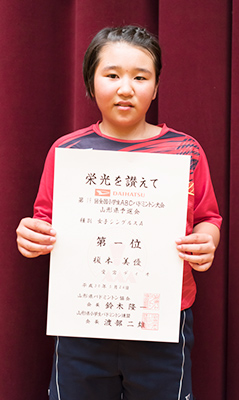 栄光を讃えて
DAIHATSU
全国小学生ABCバドミントン大会
山形県予選会
種別 女子シングルス
第一位
山形県バドミントン協会
会長 鈴木隆一
山形県小学生バドミントン連盟
会長 渡部二雄